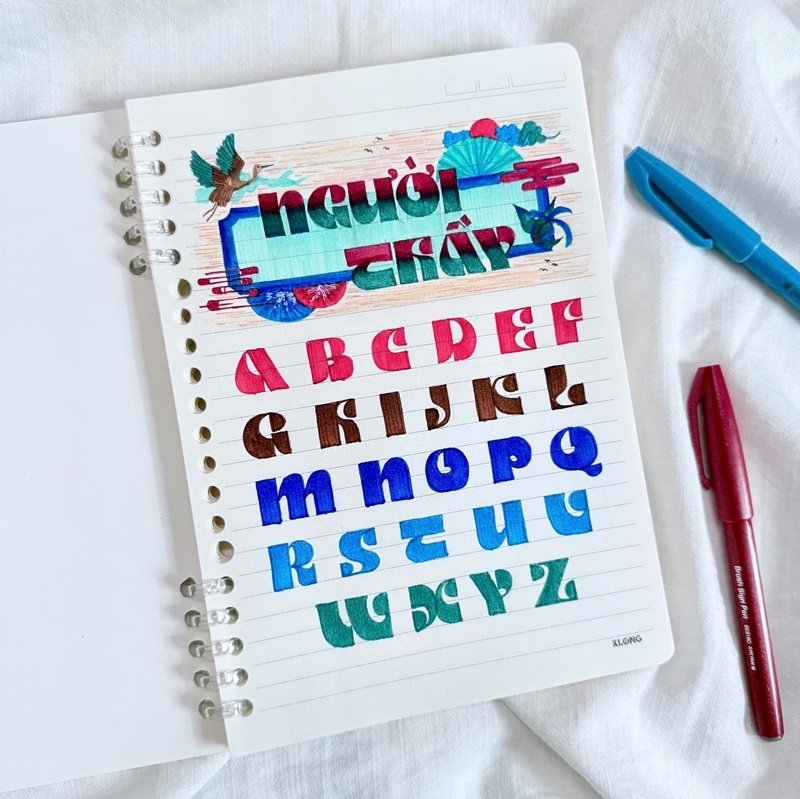 NGƯỜI
THẦY
A B C D E F
G H I J K L
M N O P Q
R S T U V
W X Y Z
KLONG
Brush Sign Pen